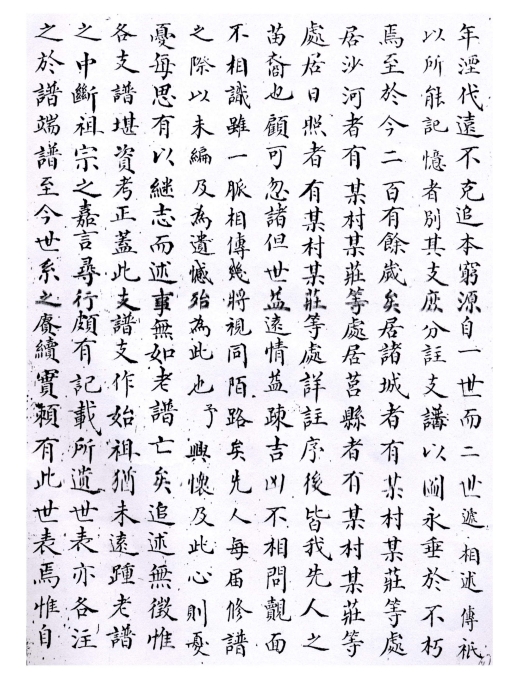 年湮代遠不克追本窮源自一世而二世遞相述傳祇
以所能記憶者別其支庶分註支譜以圖永垂於不朽
焉至於今二百有餘歲矣居諸城者有某村某莊等處
居沙河者有某村某莊等處居莒縣者有某村某莊等
處居日照者有某村某莊等處詳註序後皆我先人之
苗裔也顧可忽諸但世益遠情益疎吉凶不相問覿面
不相識雖一脈相傳幾將視同陌路矣先人每届修譜
之際以未編及為遺憾殆為此也予興懷及此心則憂
憂每思有以繼志而述事無如老譜亡矣追述無徵惟
各支譜堪資考正蓋此支譜支作始祖猶未遠踵老譜
之中斷祖宗之嘉言尋行頗有記載所遺世表亦各注
之於譜端譜至今世系之賡續實賴有此世表焉惟自